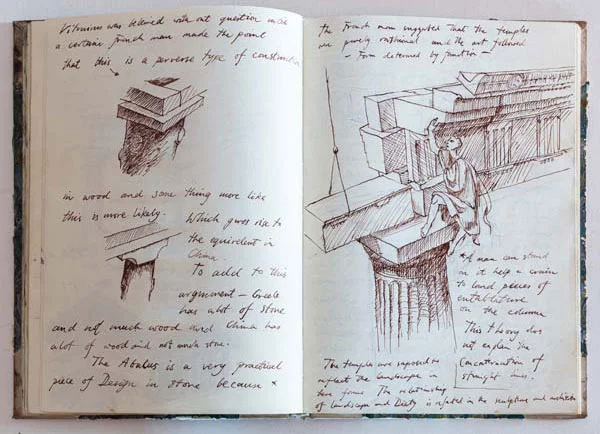 Vitruvius was believed with out question until
a certain French man made the point
that this is a perverse type of construction
in wood and some thing more like
this is more likely. Which gives rise to
the equivalent in
China.
To add to this
argument – Greece
has a lot of stone
and not much wood and China has
a lot of wood and not much stone.
The Abacus is a very practical
piece of Design in stone because *
the French man suggested that the temples
are purely rational and the art followed
– Form determined by function –
* A man can stand
on it help a crain
to land pieces of
entablature
on the column
This theory does
not explain the
Concentration of
straight lines.
The temples are supposed to
reflect the landscape in
their forms. The relationship
of landscape and Diety is reflected in the sculpture and architecture